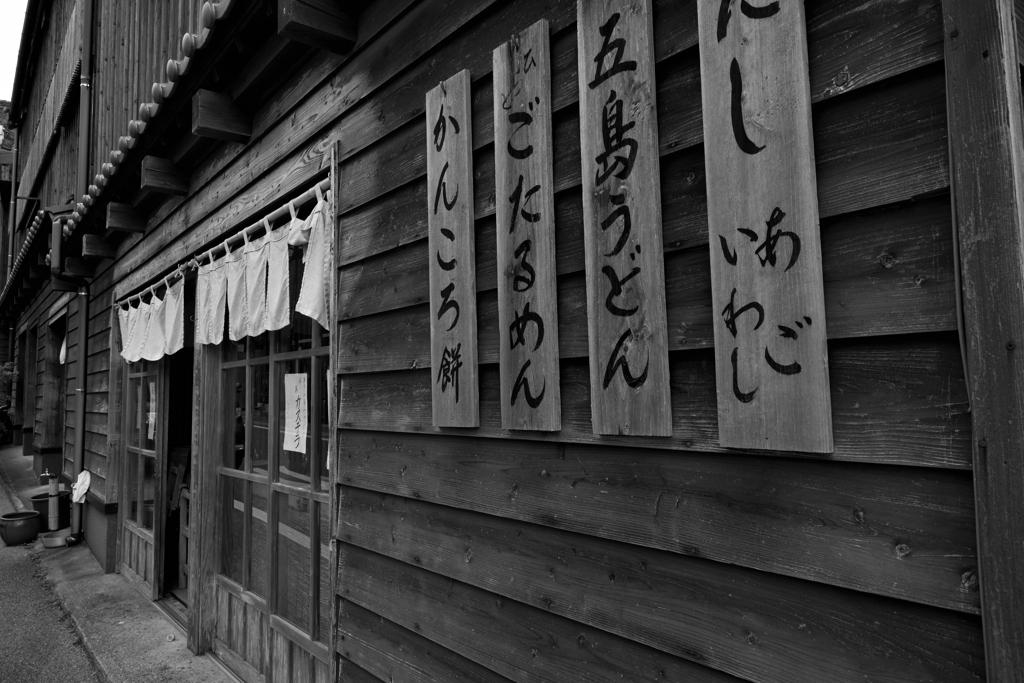 だし
あご
いわし
五島うどん
ごたるめん
かんころ餅
カステラ